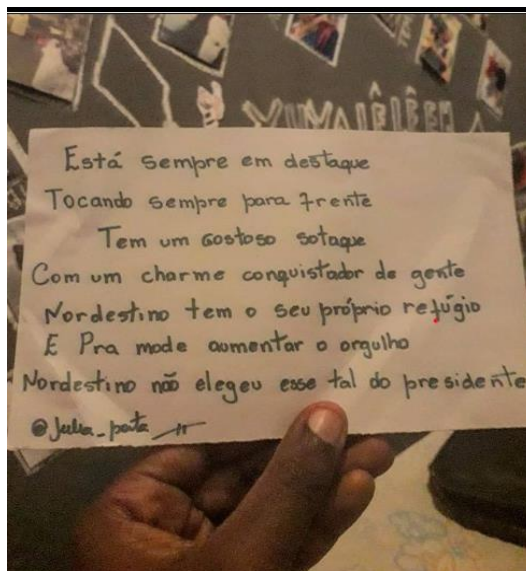 Está sempre em destaque
Tocando sempre para frente
Tem um Gostoso sotaque
Com um charme conquistador de gente
Nordestino tem o seu próprio refúgio
E Pra mode aumentar o orgulho
Nordestino não elegeu esse tal do presidente